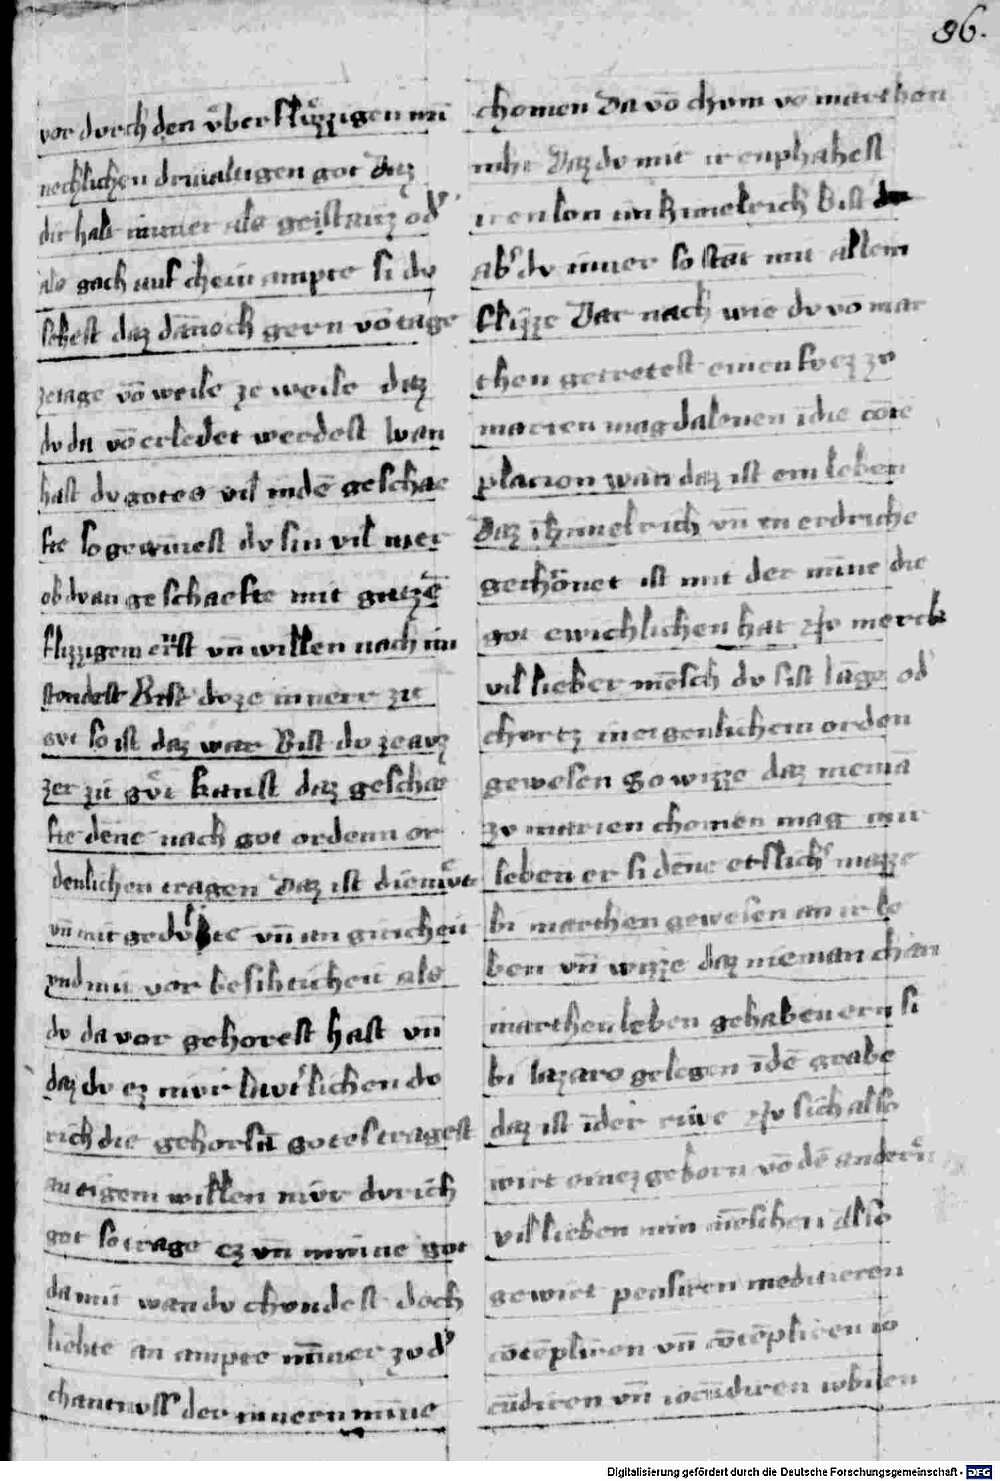 96.
vor durch den vͦber flvͦzzigen mi
nechlichen drivaltigen got Daz
dir halt immer als geist
als gach auf chein ampte si dv
sehest daz dānoch gern vō tage
ze tage vō weile ze weile daz
dv da vō erledet werdest wan
hast dv gotes vil in dē geschae
fte so gewīnest dv sin vil mer
ob dv an geschaefte mit gātzē
flizzigem ernst vn̄ willen nach im
stondest Bist dv ze innerr zit
gvt so ist daz war Bist dv ze avz
zer zit gvͦt kanst daz geschae
fte dēne nach got ordenn or
denlichen tragen Daz ist diemvͤte
vn̄ mit gedvlte vn̄ an
vnd mit vor besihticheit als
dv da vor gehoret hast vn̄
daz dv ez nivr dv
rch die gehorsā gotes tragest
an eigem willen nivr dvrich
got so trage ez vn̄ minne got
da mit wan dv chondest doch
liehte an ampte nimmer zv dʼ
chantnvss der innern minne
chomen Da vō chvm vō marthen
niht Daz dv mit ir enphahest
iren lon im himelrich Bist dv
abʼ dv immer so stāt mit allem
flizze Dar nach wie dv vō mar
then getretest einen fvez zv
marien magdalenen ī die cōte
plation wan daz ist ein leben
Daz ī himelrich vn̄ vn erdriche
gechrönet ist mit der minne die
got ewichlichen hat Nv merck
vil lieber mēsch dv sist lāge odʼ
chvrtz in geistlichem orden
gewesen So wizze daz niemā
zv marien chomen mag mit
leben er si dēne etslichʼ mazze
bi marthen gewesen an ir le
ben vn̄ wizze daz nieman chan
marthen leben gehaben ern si
bi lazaro gelegen ī dē grabe
daz ist ī der riwe Nv sich also
wirt einez geborn vō dē andern
vil lieben min mēschen Also
gewirt pensiren meditieren
cōtēpliren vn̄ cōtēpliren io
cūdiren vn̄ iocūdiren ivbilen
Digitalisierung gefördert durch die Deutsche Forschungsgemeinschaft - DFG